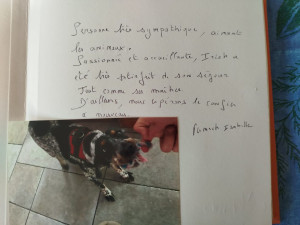 Personne très sympathique, aimant
les animaux.
Passionnée et accueillante, Irish a
été très satisfait de son séjour
Tout comme sa maîtresse.
D'ailleurs, nous lui ferons le confier
à nouveau
Isabelle